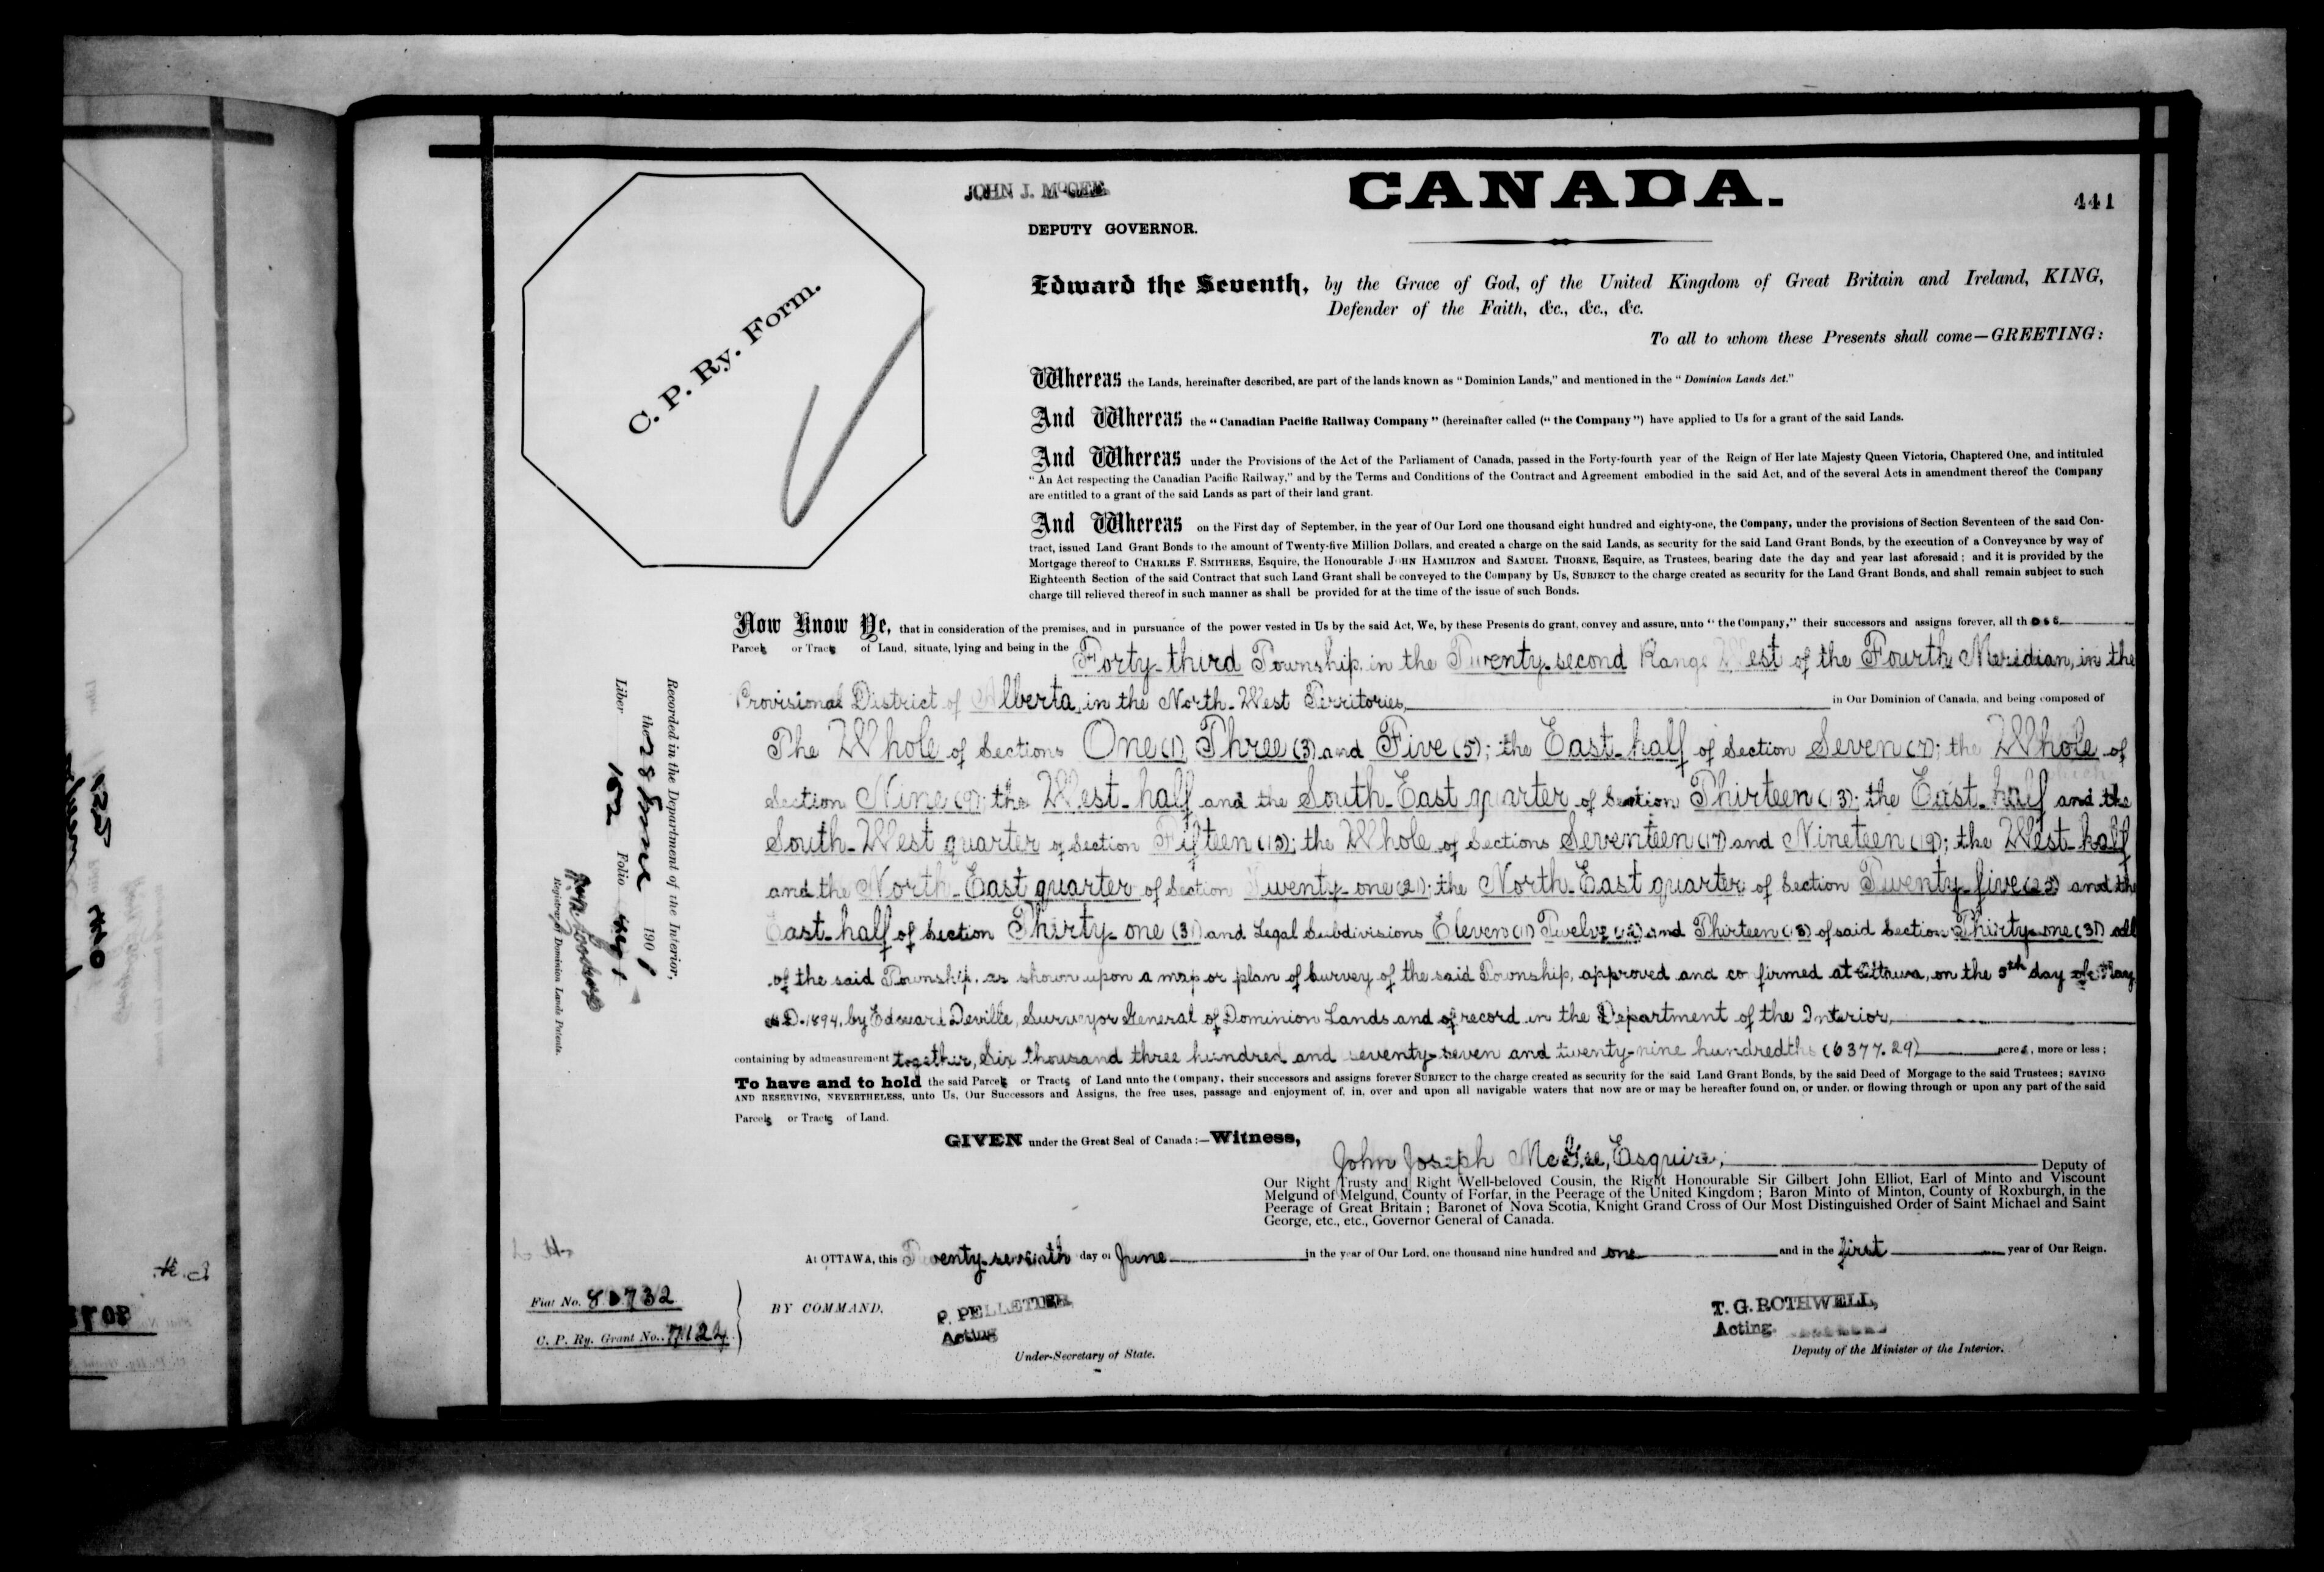 JOHN J. McGEE
DEPUTY GOVERNOR.
CANADA.
441
C. P. Ry. Form.
Edward the Seventh, by the Grace of God, of the United Kingdom of Great Britain and Ireland, KING,
Defender of the Faith, &c., &c., &c.
To all to whom these Presents shall come—GREETING:
Whereas the Lands, hereinafter described, are part of the lands known as "Dominion Lands," and mentioned in the "Dominion Lands Act."
And Whereas the "Canadian Pacific Railway Company" (hereinafter called ("the Company") have applied to Us for a grant of the said Lands.
And Whereas under the Provisions of the Act of the Parliament of Canada, passed in the Forty-fourth year of the Reign of Her late Majesty Queen Victoria, Chaptered One, and intituled
"An Act respecting the Canadian Pacific Railway," and by the Terms and Conditions of the Contract and Agreement embodied in the said Act, and of the several Acts in amendment thereof the Company
are entitled to a grant of the said Lands as part of their land grant.
And Whereas on the First day of September, in the year of Our Lord one thousand eight hundred and eighty-one, the Company, under the provisions of Section Seventeen of the said Con-
tract, issued Land Grant Bonds to the amount of Twenty-five Million Dollars, and created a charge on the said Lands, as security for the said Land Grant Bonds, by the execution of a Conveyance by way of
Mortgage thereof to CHARLES F. SMITHERS, Esquire, the Honourable JOHN HAMILTON and SAMUEL THORNE, Esquire, as Trustees, bearing date the day and year last aforesaid; and it is provided by the
Eighteenth Section of the said Contract that such Land Grant shall be conveyed to the Company by Us, SUBJECT to the charge created as security for the Land Grant Bonds, and shall remain subject to such
charge till relieved thereof in such manner as shall be provided for at the time of the issue of such Bonds.
Now Know Ye, that in consideration of the premises, and in pursuance of the power vested in Us by the said Act, We, by these Presents do grant, convey and assure, unto "the Company," their successors and assigns forever, all those
Parcels or Tracts of Land, situate, lying and being in the Forty-third Township, in the Twenty-second Range West of the Fourth Meridian, in the
Provisional District of Alberta, in the North-West Territories, in Our Dominion of Canada, and being composed of
The Whole of Sections One (1) Three (3) and Five (5); the East-half of Section Seven (7); the Whole of
Section Nine (9); the West-half and the South-East quarter of Section Thirteen (13); the East-half and the
South-West quarter of Section Fifteen (15); the Whole of Sections Seventeen (17) and Nineteen (19); the West-half
and the North-East quarter of Section Twenty-one (21); the North-East quarter of Section Twenty-five (25) and the
East-half of Section Thirty-one (31) and Legal Subdivisions Eleven (11) Twelve (12) and Thirteen (13) of said Section Thirty-one (31) all
of the said Township, as shown upon a map or plan of Survey of the said Township, approved and confirmed at Ottawa, on the 5th day of May,
A.D. 1894, by Edouard Deville, Surveyor General of Dominion Lands and of record in the Department of the Interior,
containing by admeasurement together, Six thousand three hundred and seventy-seven and twenty-nine hundredths (6377.29) acres, more or less;
To have and to hold the said Parcels or Tracts of Land unto the Company, their successors and assigns forever SUBJECT to the charge created as security for the said Land Grant Bonds, by the said Deed of Morgage to the said Trustees; SAVING
AND RESERVING, NEVERTHELESS, unto Us, Our Successors and Assigns, the free uses, passage and enjoyment of, in, over and upon all navigable waters that now are or may be hereafter found on, or under, or flowing through or upon any part of the said
Parcels or Tracts of Land.
GIVEN under the Great Seal of Canada:—Witness,
John Joseph McGee, Esquire, Deputy of
Our Right Trusty and Right Well-beloved Cousin, the Right Honourable Sir Gilbert John Elliot, Earl of Minto and Viscount
Melgund of Melgund, County of Forfar, in the Peerage of the United Kingdom; Baron Minto of Minton, County of Roxburgh, in the
Peerage of Great Britain; Baronet of Nova Scotia, Knight Grand Cross of Our Most Distinguished Order of Saint Michael and Saint
George, etc., etc., Governor General of Canada.
At OTTAWA, this Twenty-seventh day of June in the year of Our Lord, one thousand nine hundred and one and in the first year of Our Reign.
BY COMMAND,
P. PELLETIER,
Acting
Under-Secretary of State.
T. G. ROTHWELL,
Acting
Deputy of the Minister of the Interior.
Fiat No. 80732
C. P. Ry. Grant No. 7124
Recorded in the Department of the Interior,
the 28 June 1901
Liber 152 Folio 441
Registrar of Dominion Lands Patents.